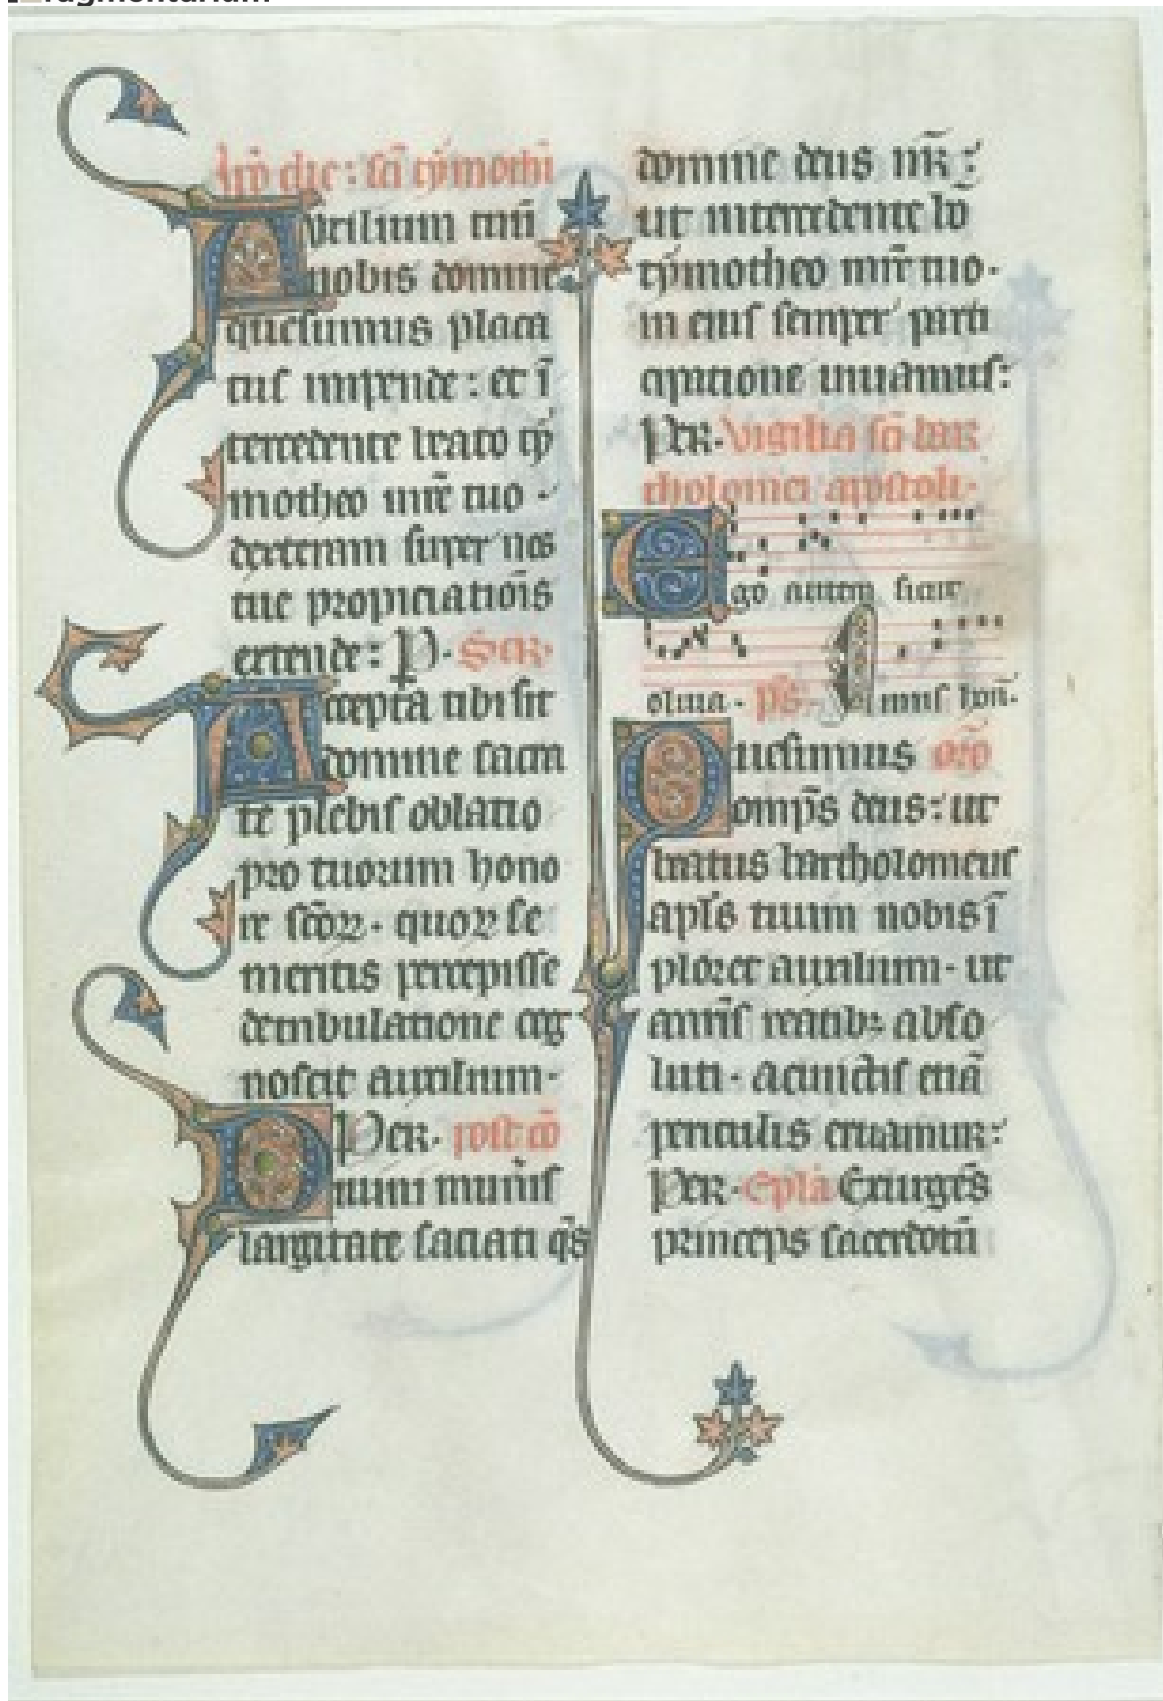 fragmentarium
Ipō die: sc̄i tymothi
Auxilium tuū
nobis domine
quesumus placa
tus impende: et ī
tercedente beato ty
motheo mr̄e tuo.
dexteram super nos
tue propiciatiōis
extende: P. Secr.
Accepta tibi sit
domine sacra
te plebis oblatio
pro tuorum hono
re sc̄oꝝ. quoꝝ se
meritis percepisse
de tribulatione cog
noscit auxilium.
Per. post cō
Diuini mun̄is
largitate saciati q̄s
domine deus nr̄:
ut intercedente bō
tymotheo mr̄e tuo.
in eius semper parti
cipatione uiuamus:
Per. Vigilia sc̄i bar
tholomei apostoli.
Ego autem sicut
oliua. ps̄.
Quesumus or̄o
omp̄s deus: ut
beatus bartholomeus
apl̄s tuum nobis ī
ploret auxilium. ut
a nr̄is reatibꝫ abso
luti. a cunctis etiā
periculis eruamur:
Per. Epl̄a Exurgēs
princeps sacerdotū